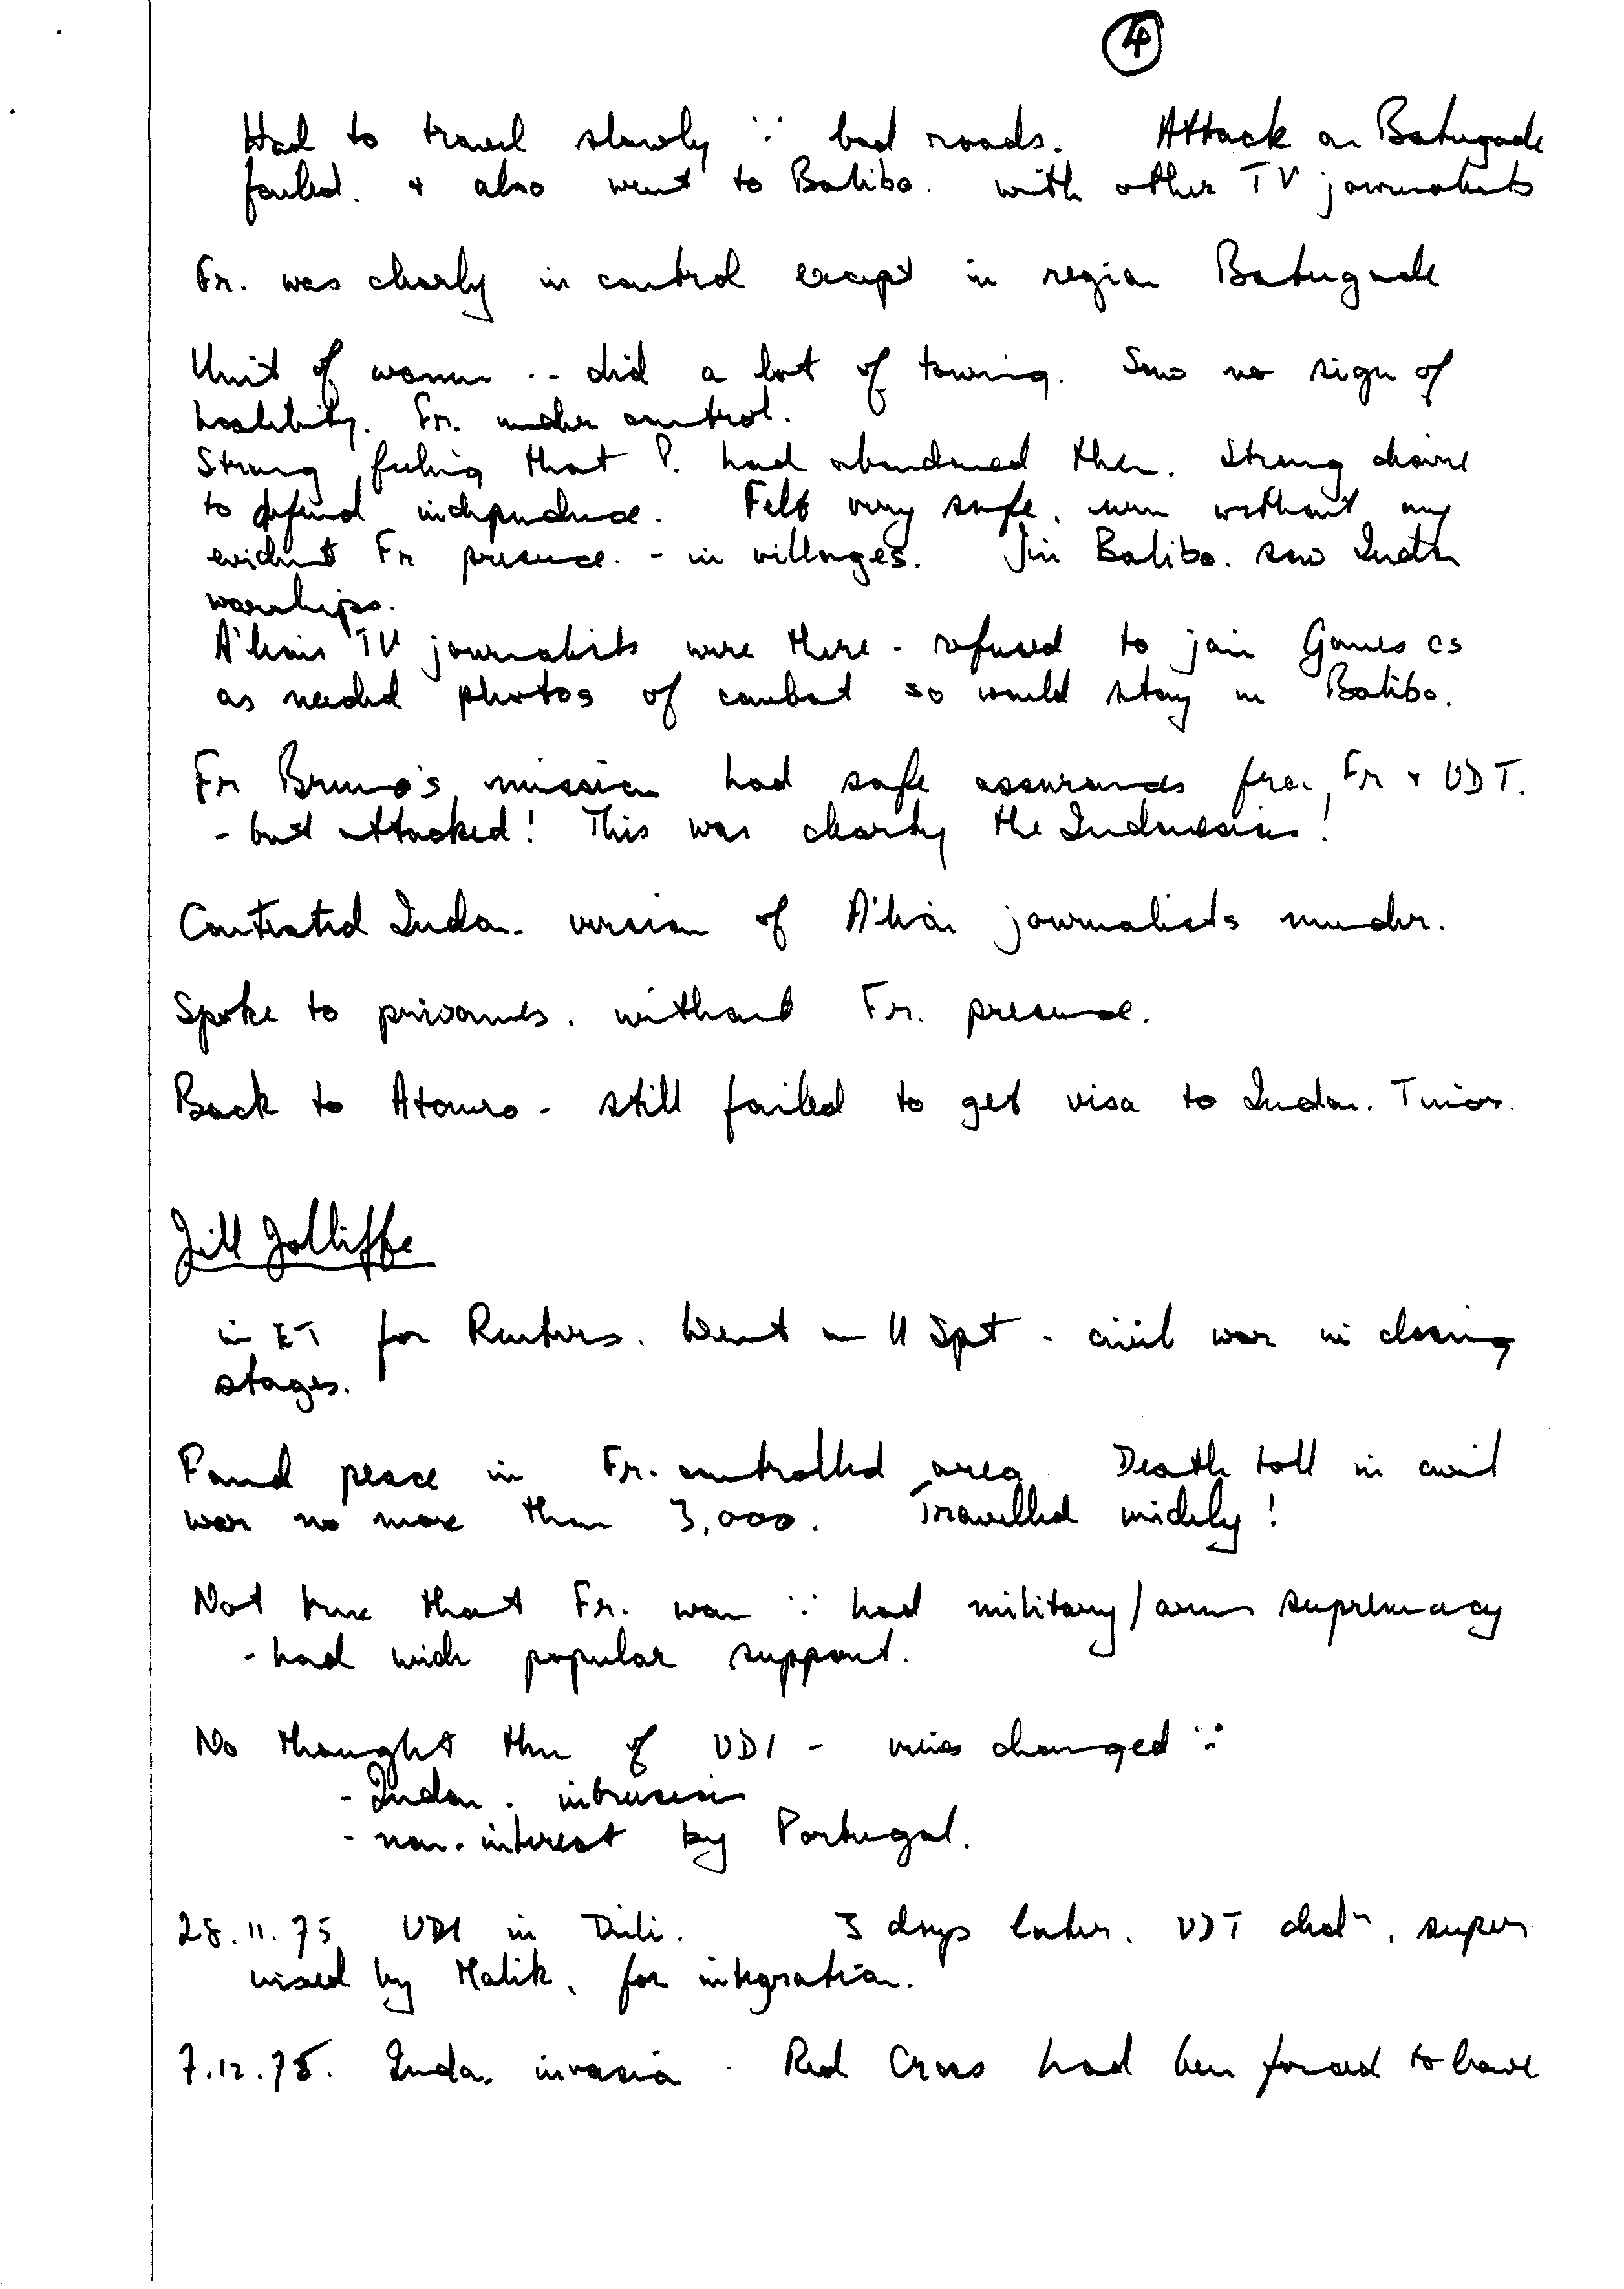 4
Had to travel slowly ∵ bad roads. Attack on Batugade
failed. + also went to Balibo. with other TV journalists
Fr. was clearly in control except in region Batugade
Unit of women .. did a lot of touring. Saw no sign of
hostility. Fr. under control.
Strong feeling that P. had abandoned them. Strong desire
to defend independence. Felt very safe, even without any
evident Fr presence. - in villages. In Balibo. saw Indon
warships.
A'lian TV journalists were there - refused to join Gomes as
as needed photos of combat so would stay in Balibo.
Fr Bruno's mission had safe assurances from Fr + UDT.
- but attacked! This was clearly the Indonesians!
Contested Indon. version of A'lian journalists murder.
Spoke to prisoners. without Fr. presence.
Back to Atauro - still failed to get visa to Indon. Timor.
Jill Jolliffe
in ET for Reuters. Went on 11 Spt - civil war in closing
stages.
Found peace in Fr. controlled area. Death toll in civil
war no more than 3,000. Travelled widely!
Not true that Fr. won ∵ had military/arms supremacy
- had wide popular support.
No thought then of UDI - views changed ∵
- Indon. intrusion
- non-interest by Portugal.
28.11.75 UDI in Dili. 3 days later, UDT decln, super
vised by Malik, for integration.
7.12.75. Indon. invasion. Red Cross had been forced to leave